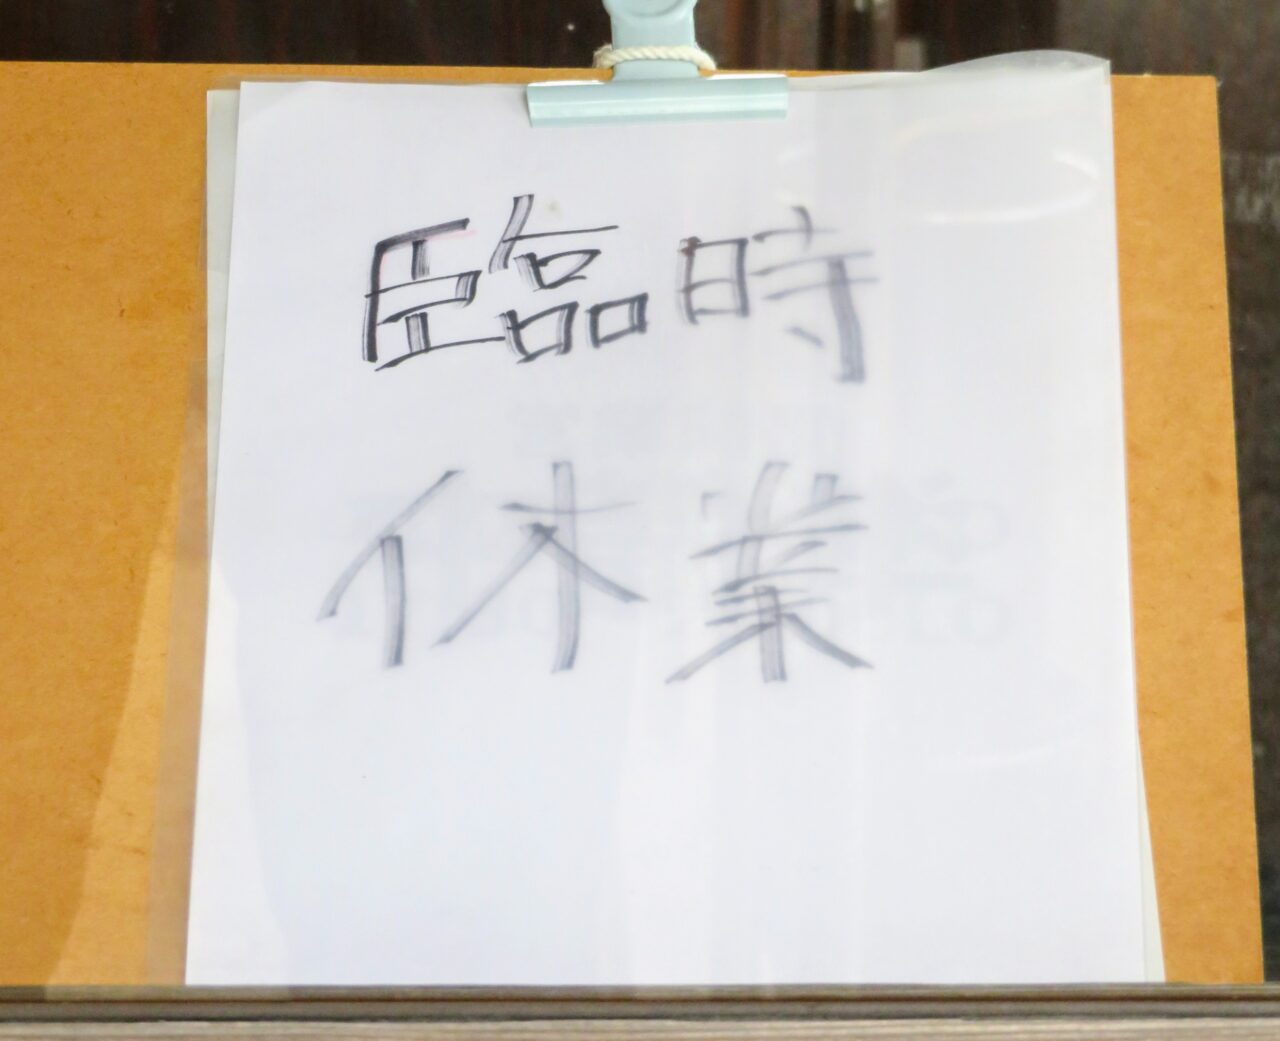 臨時
休業